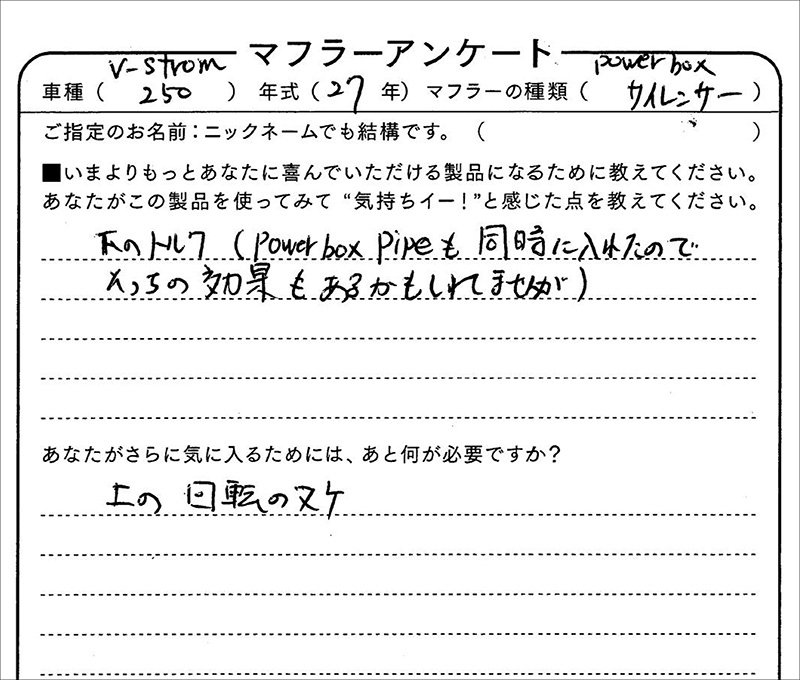 マフラーアンケート
車種（ V-Strom 250 ） 年式（ 27 年） マフラーの種類（ powerbox サイレンサー ）
ご指定のお名前：ニックネームでも結構です。（ ）
■いまよりもっとあなたに喜んでいただける製品になるために教えてください。
あなたがこの製品を使ってみて “気持ちイー！”と感じた点を教えてください。
下のトルク（Powerbox pipeも同時に入れたので
そっちの効果もあるかもしれてませんが）
あなたがさらに気に入るためには、あと何が必要ですか？
上の回転のヌケ